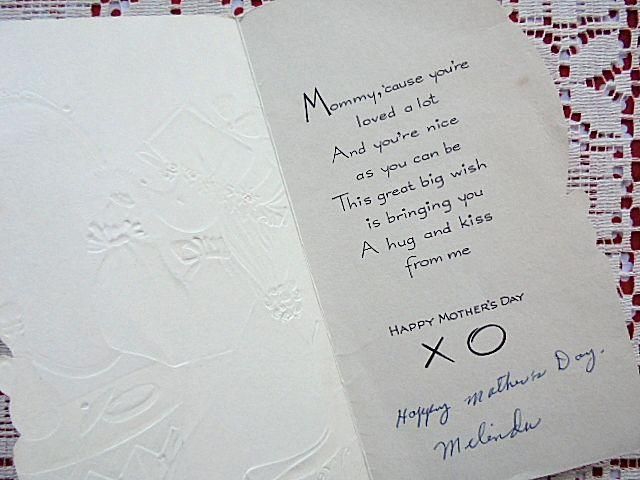 Mommy, 'cause you're
loved a lot
And you're nice
as you can be
This great big wish
is bringing you
A hug and kiss
from me
HAPPY MOTHER'S DAY
X O
Happy Mother's Day.
Melinda